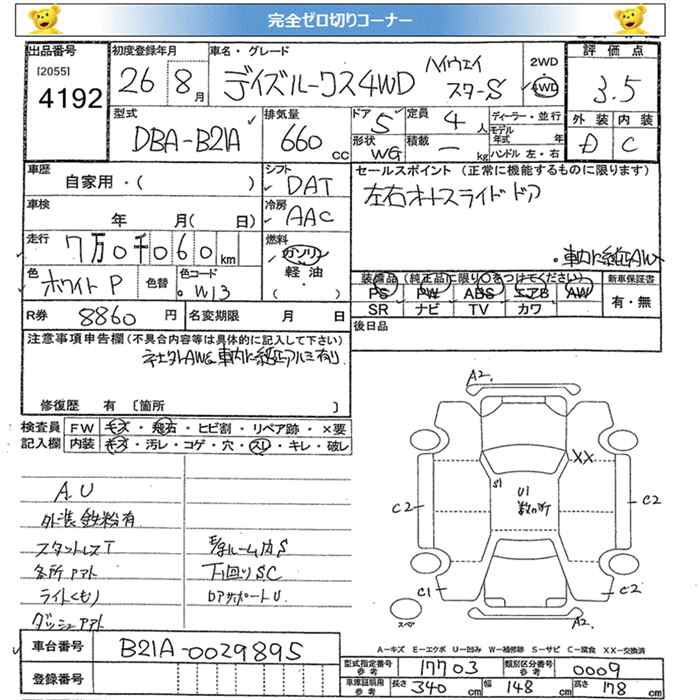 完全ゼロ切りコーナー
出品番号 初度登録年月 車名・グレード 評価点
[2055] 4192
26 8月 デイズルークス4WD ハイウェイスターS
2WD
4WD
3.5
型式 排気量 ドア 5 定員 4人 ディーラー・並行 外装 内装
DBA-B21A 660cc 形状 WG 積載 ー kg モデル年式 年 D C
ハンドル 左・右
車歴 シフト セールスポイント (正常に機能するものに限ります)
自家用・( ) DAT
左右オートスライドドア
車検 冷房
年 月( 日) AAC
走行 燃料
7万0千060km ガソリン
車内に純正AW
軽油
( )
色 色替 色コード 装備品 (純正品に限り○をつけてください) 新車保証書
ホワイトP W13
PS PW ABS エアB AW 有・無
SR ナビ TV カワ
R券 8860円 名変期限 月 日
後日品
注意事項申告欄(不具合内容等は具体的に記入して下さい)
社外AWで車内に純正アルミ有り
修復歴 有 [箇所 ]
検査員 FW キズ・飛石・ヒビ割・リペア跡・×要
記入欄 内装 キズ・汚レ・コゲ・穴・スリ・キレ・破レ
A2.
XX
S1
U1
数ヶ所
C2
C2
C1
C2
スペア
A2.
AU
外装鉄粉有
スタットレスT
各所アト
ライトくもり
ダッシュアト
ルームカS
下回りSC
ロアサポートU
A-キズ E-エクボ U-凹み W-補修跡 S-サビ C-腐食 XX-交換済
車台番号 B21A-0029895
登録番号
型式指定番号 参考 17703 類別区分番号 参考 0009
車庫証明用 参考 長さ 340cm 幅 148cm 高さ 178cm